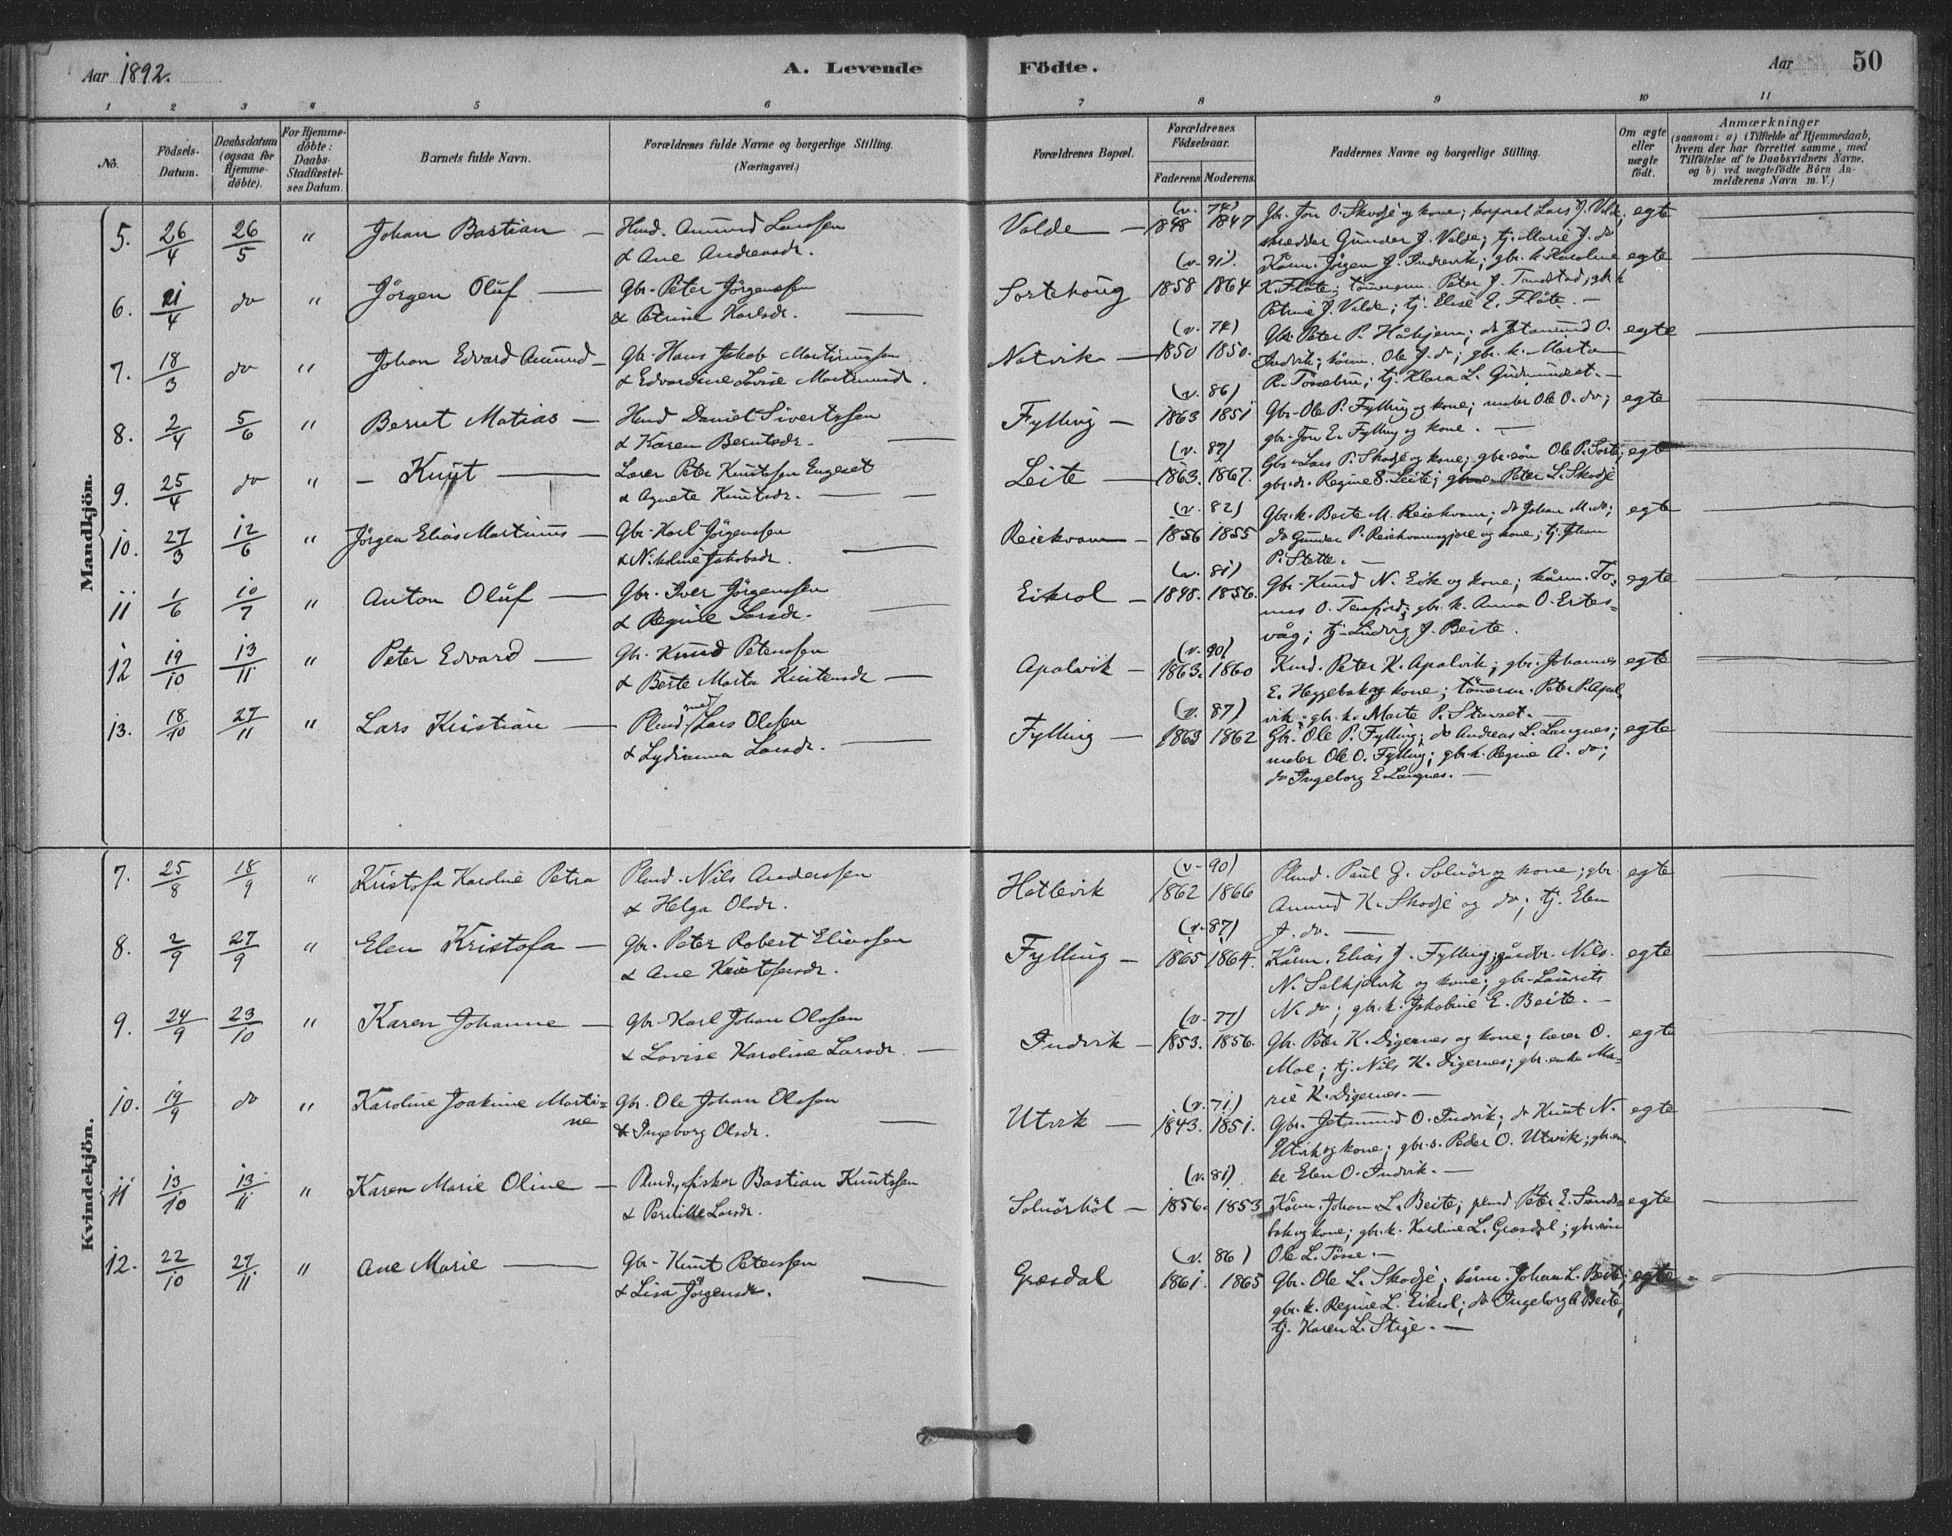 Aar 1892. A. Levende Födte. Aar 50
1 2 3 4 5 6 7 8 9 10 11
Nö.
Födsels-Datum.
Daabsdatum (ogsaa for Hjemmedöbte).
For Hjemmedöbte: Daabs-Stadfæstelses Datum.
Barnets fulde Navn.
Forældrenes fulde Navne og borgerlige Stilling. (Næringsvei.)
Forældrenes Bopæl.
Forældrenes Födselsaar.
Faderens. Moderens.
Faddernes Navne og borgerlige Stilling.
Om ægte eller uægte födt.
Anmærkninger
(saasom: a) i Tilfælde af Hjemmedaab, hvem der har forrettet samme, med Tilföielse af to Daabsvidners Navne, og b) ved uægtefödte Börn Anmelderens Navn m. V.)
Mandkjön.
5. 26/4 26/5 " Johan Bastian — Hmd. Amund Larssen Valde — (v. 74) 1848 1847 Gbr. Jon O. Skodje og kone; korporal Lars J. Valde; egte
& Ane Andreasdr. skrædder Gunder J. Valde; tj. Marie J. do
6. 21/4 do " Jörgen Oluf — Gbr. Peter Jörgenssen Sortehoug (v. 91) 1858 1864 Kårm. Jörgen J. Indrevik; gbr. k. Karoline egte
& Petrine Karlsdr. — K. Flöte; tömmerm. Peter J. Tandstad; gbr. k
Petrine J. Valde; tj. Elise E. Flöte. —
7. 18/3 do " Johan Edvard Amund — Gbr. Hans Jakob Martinussen Notvik — (v. 74) 1850 1850. Gbr. Peter P. Håhjem; do Jetmund O. egte
& Edvardine Lovise Martinusdr. Indvik; kårm. Ole J. do; gbr. k. Marta
R. Tössebru; tj. Klara L. Gudmundset. —
8. 2/4 5/6 " Bernt Matias — Hmd Daniel Sivertssen Fylling — (v. 86) 1863 1851 Gbr. Ole P. Fylling og kone; møler Ole O. do; egte
& Karen Berntsdr. — gbr. Jon E. Fylling og kone. —
9. 25/4 do " — Knut — Lærer Peter Knutssen Engeset Leite — (v. 87) 1863. 1867. Gbr. Lars P. Skodje og kone; gbr.søn Ole P. Sorte; egte
& Agnete Knutsdr. — gbr.dr. Regine S. Leite; Peter L. Skodje
10. 27/3 12/6 " Jörgen Elias Martinus — Gbr. Karl Jörgenssen Reiekvam — (v. 82) 1856 1855 Gbr. k. Berte M. Reiekvam; do Johan M. do; egte
& Nikoline Jakobsdr. — do Gunder P. Reiekvamsgjære og kone; tj. Johan
P. Stette. —
11 1/6 10/7 " Anton Oluf — Gbr. Iver Jörgenssen Eikrol — (v. 81) 1848. 1856. Gbr. Knud N. Eik og kone; kårm. To- egte
& Regine Larsdr. — mas O. Tenfjord; gbr. k. Anna O. Ertes-
våg; tj. Ludvig J. Beite.
12 19/10 13/11 " Peter Edvard — Gbr. Knud Peterssen Apalvik — (v. 90) 1863. 1860 Kmd. Peter K. Apalvik; gbr. Johannes egte
& Berte Marta Knutsdr — E. Heggebak og kone; tömmerm. Peter P. Apal
vik; gbr. k. Marte P. Stavset. —
13. 18/10 27/11 " Lars Kristian — Plmd Lars Olssen Fylling — (v. 87) 1863 1862 Gbr. Ole P. Fylling; do Andreas L. Langnes; egte
& Lydianna Larsdr. — møler Ole O. Fylling; gbr. k. Regine A. do;
do Ingeborg E. Langnes. —
Kvindekjön.
7. 25/8 18/9 " Kristofa Karoline Petra Plmd. Nils Anderssen Hatlevik (v. 90) 1862 1866 Plmd. Paul G. Solnör og kone; gbr. egte
& Helga Olsdr. Amund K. Skodje og do; tj. Elen
J. do. —
8. 2/9 27/9 " Elen Kristofa — Gbr. Peter Robert Eliassen Fylling — (v. 87) 1865 1864. Kårm. Elias J. Fylling; gårdbr. Nils egte
& Ane Kristofersdr. N. Solhjelvik og kone; gbr. Laurits
N. do; gbr. k. Jakobine E. Beite. —
9. 24/9 23/10 " Karen Johanne — Gbr. Karl Johan Olssen Indvik — (v. 77) 1853. 1856. Gbr. Peter K. Digernes og kone; lærer O. egte
& Lovise Karoline Larsdr. — Moe; tj. Nils K. Digernes; gbr. enke Ma-
rie K. Digernes. —
10. 19/9 do " Karoline Joakime Marti- Gbr. Ole Johan Olssen Utvik — (v. 71) 1843. 1851. Gbr. Jetmund O. Indvik; do Knut N. egte
ne & Ingeborg Olsdr. — Utvik og kone; gbr. s. Peder O. Utvik; gbr. en-
ke Elen O. Indvik. —
11 13/10 13/11 " Karen Marie Oline — Plmd, fisker Bastian Knutssen Solnörhöl — (v. 81) 1856. 1853 Kårm. Johan L. Beite; plmd Peter E. Sande- egte
& Pernille Larsdr. bak og kone; gbr. k. Karoline L. Græsdal; gbr. søn
Ole L. Töse. —
12. 22/10 27/11 " Ane Marie — Gbr. Knut Peterssen Græsdal (v. 86) 1861. 1865 Gbr. Ole L. Skodje; kårm. Johan L. Beite; egte
& Lisa Jörgensdr. — gbr. k. Regine L. Eikrol; do Ingeborg A Beite,
tj. Karen L. Stige. —